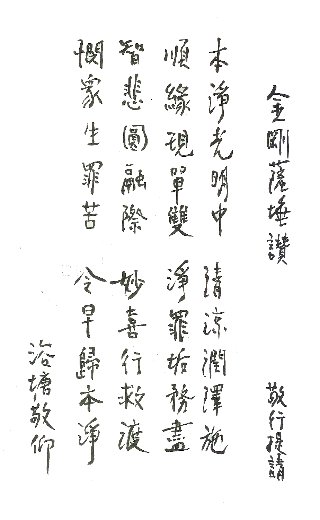 金剛薩埵讚 敬行提請
本淨光明中 清涼潤澤施
順緣現單雙 淨罪垢務盡
智悲圓融際 妙喜行救渡
憫眾生罪苦 令早歸本淨
浴塘敬仰